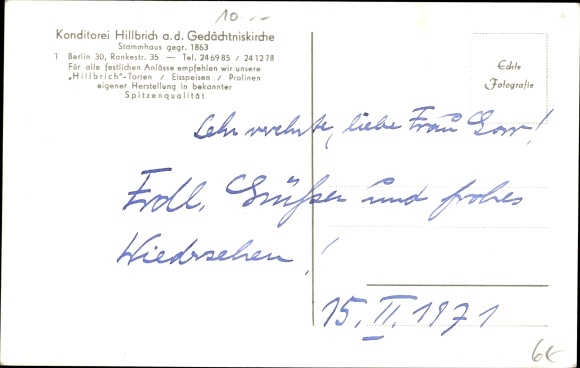 10.--
Konditorei Hillbrich a. d. Gedächtniskirche
Stammhaus gegr. 1863
1 Berlin 30, Rankestr. 35 — Tel. 24 69 85 / 24 12 78
Für alle festlichen Anlässe empfehlen wir unsere
„Hillbrich"-Torten / Eisspeisen / Pralinen
eigener Herstellung in bekannter
Spitzenqualität
Echte
Fotografie
Sehr verehrte, liebe Frau !
Frdl. Grüße und frohes
Wiedersehen!
15. II. 1971